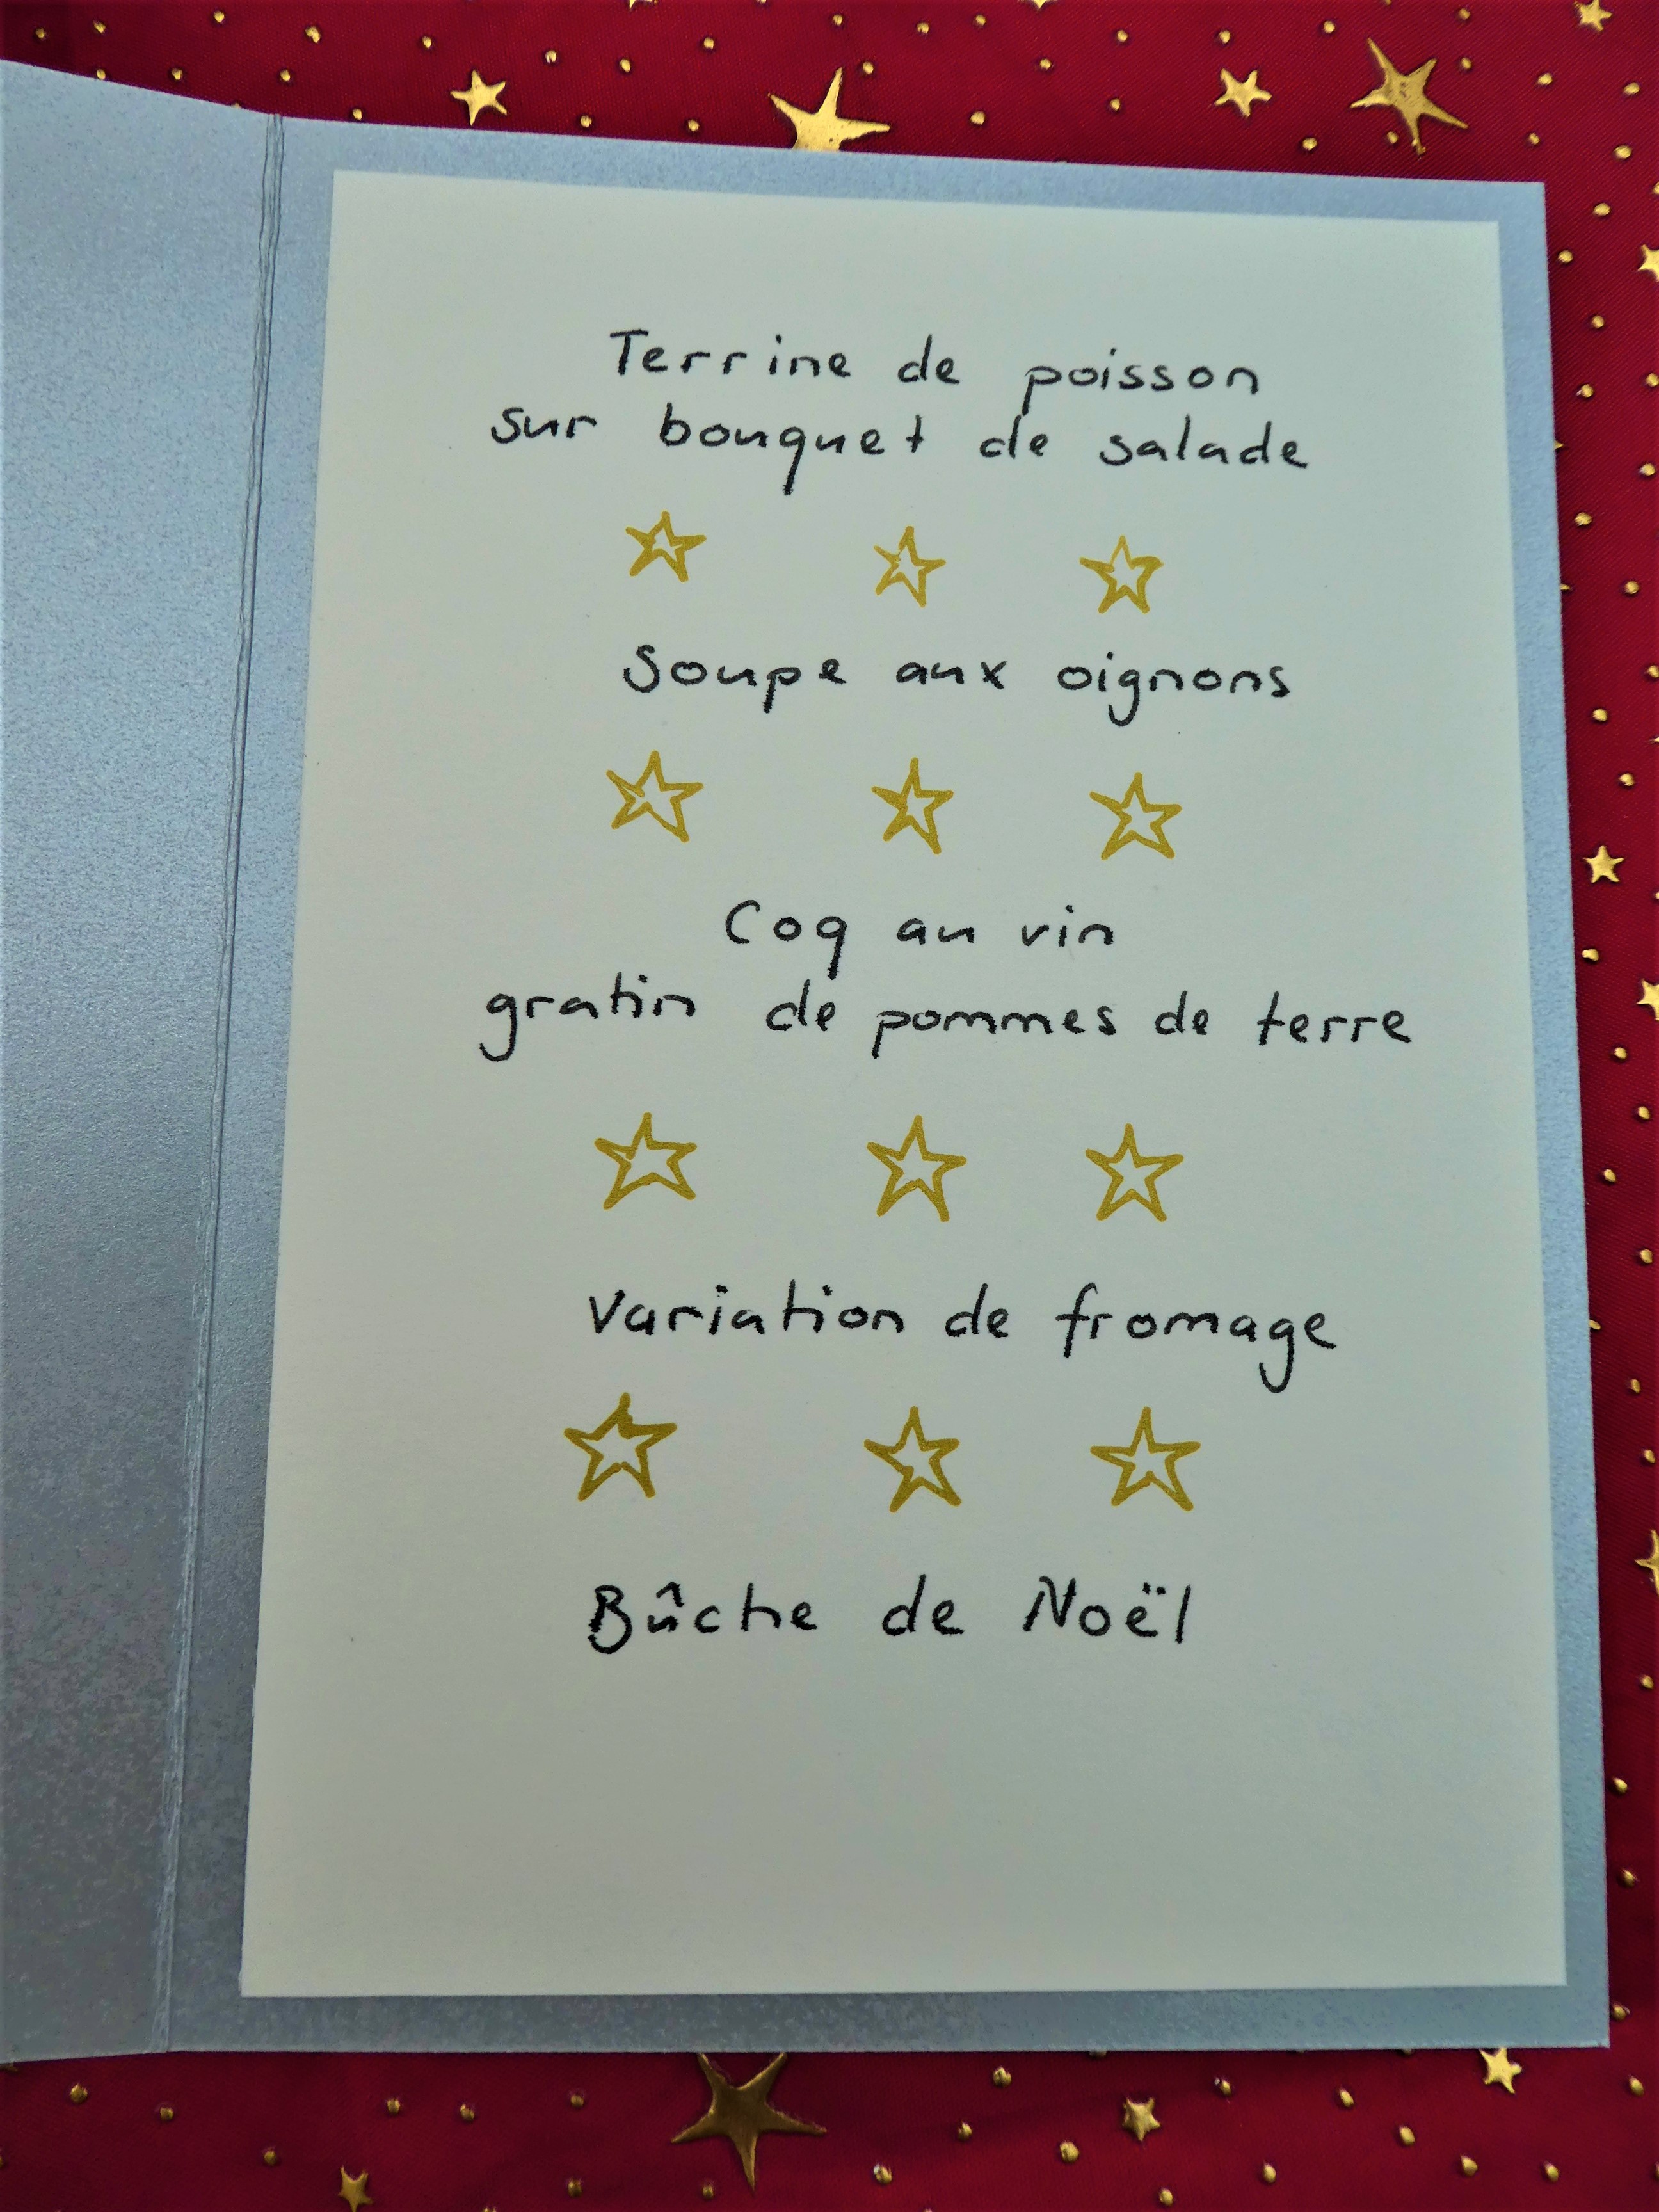 Terrine de poisson
sur bouquet de salade
Soupe aux oignons
Coq au vin
gratin de pommes de terre
Variation de fromage
Bûche de Noël